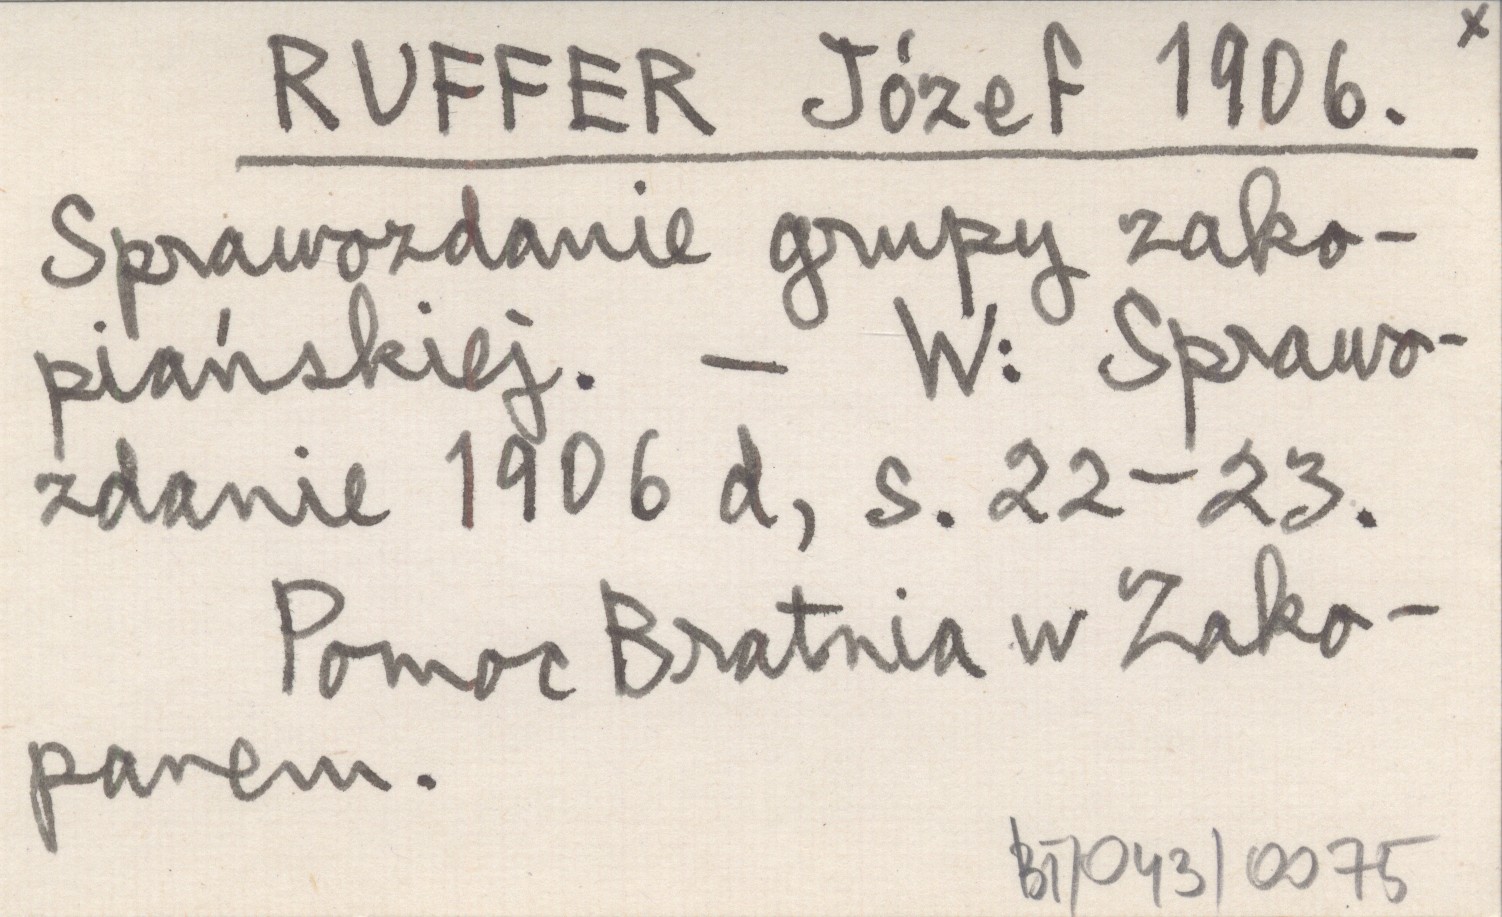 RUFFER Józef 1906. x
Sprawozdanie grupy zako-
piańskiej. – W: Sprawo-
zdanie 1906 d, s. 22–23.
Pomoc Bratnia w Zako-
panem.
BT/043/0075